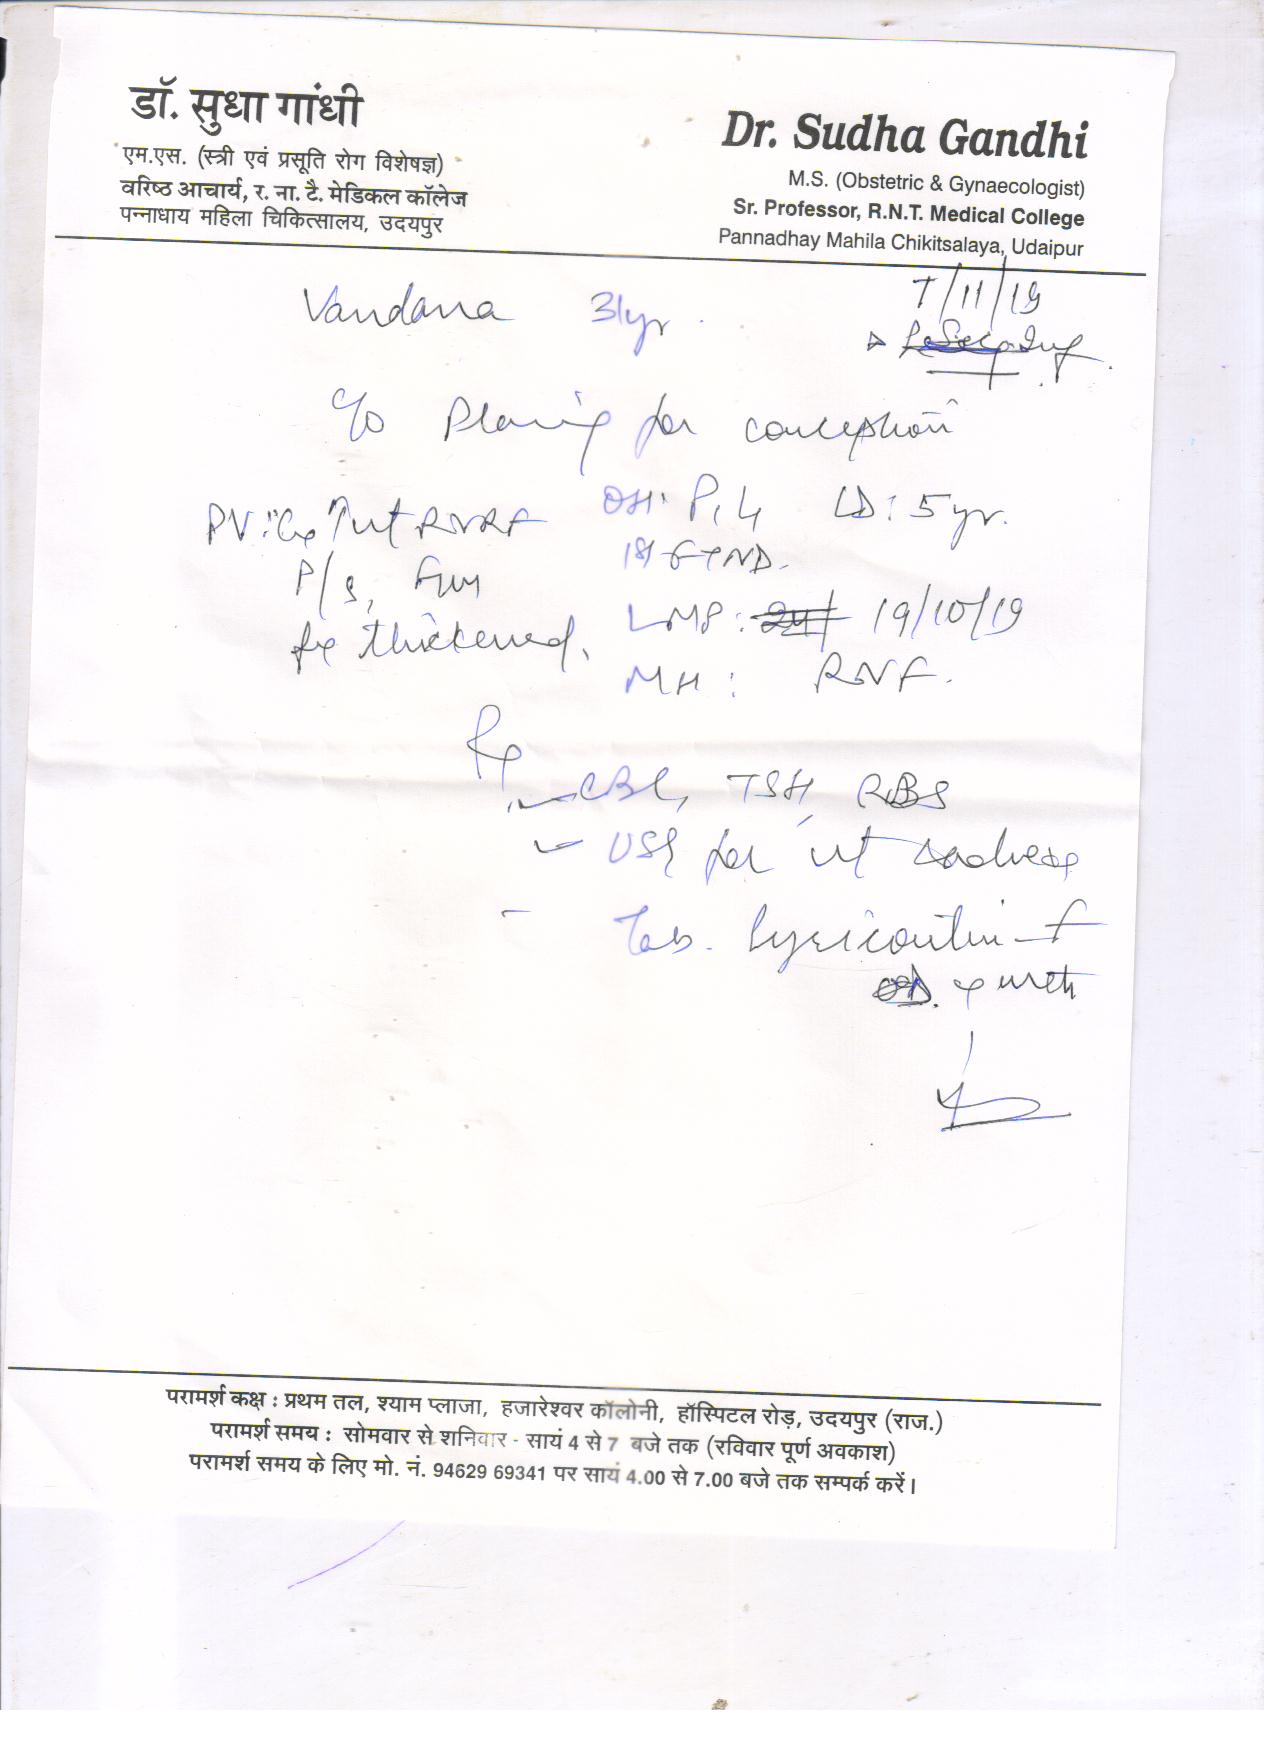 डॉ. सुधा गांधी
एम.एस. (स्त्री एवं प्रसूति रोग विशेषज्ञ)
वरिष्ठ आचार्य, र. ना. टै. मेडिकल कॉलेज
पन्नाधाय महिला चिकित्सालय, उदयपुर
Dr. Sudha Gandhi
M.S. (Obstetric & Gynaecologist)
Sr. Professor, R.N.T. Medical College
Pannadhay Mahila Chikitsalaya, Udaipur
7/11/19
Vandana 31yr.
c/o Planing for conception
OH: P1L1 LD: 5 yr.
1st FTND.
LMP: 19/10/19
MH: RNF.
PV: Cx ut RNRF
P/S,
Cx thickened,
Rx
- CBC, TSH, RBS
- USG for ut
- Tab.
OD.
परामर्श कक्ष : प्रथम तल, श्याम प्लाजा, हजारेश्वर कॉलोनी, हॉस्पिटल रोड़, उदयपुर (राज.)
परामर्श समय : सोमवार से शनिवार - सायं 4 से 7 बजे तक (रविवार पूर्ण अवकाश)
परामर्श समय के लिए मो. नं. 94629 69341 पर सायं 4.00 से 7.00 बजे तक सम्पर्क करें।